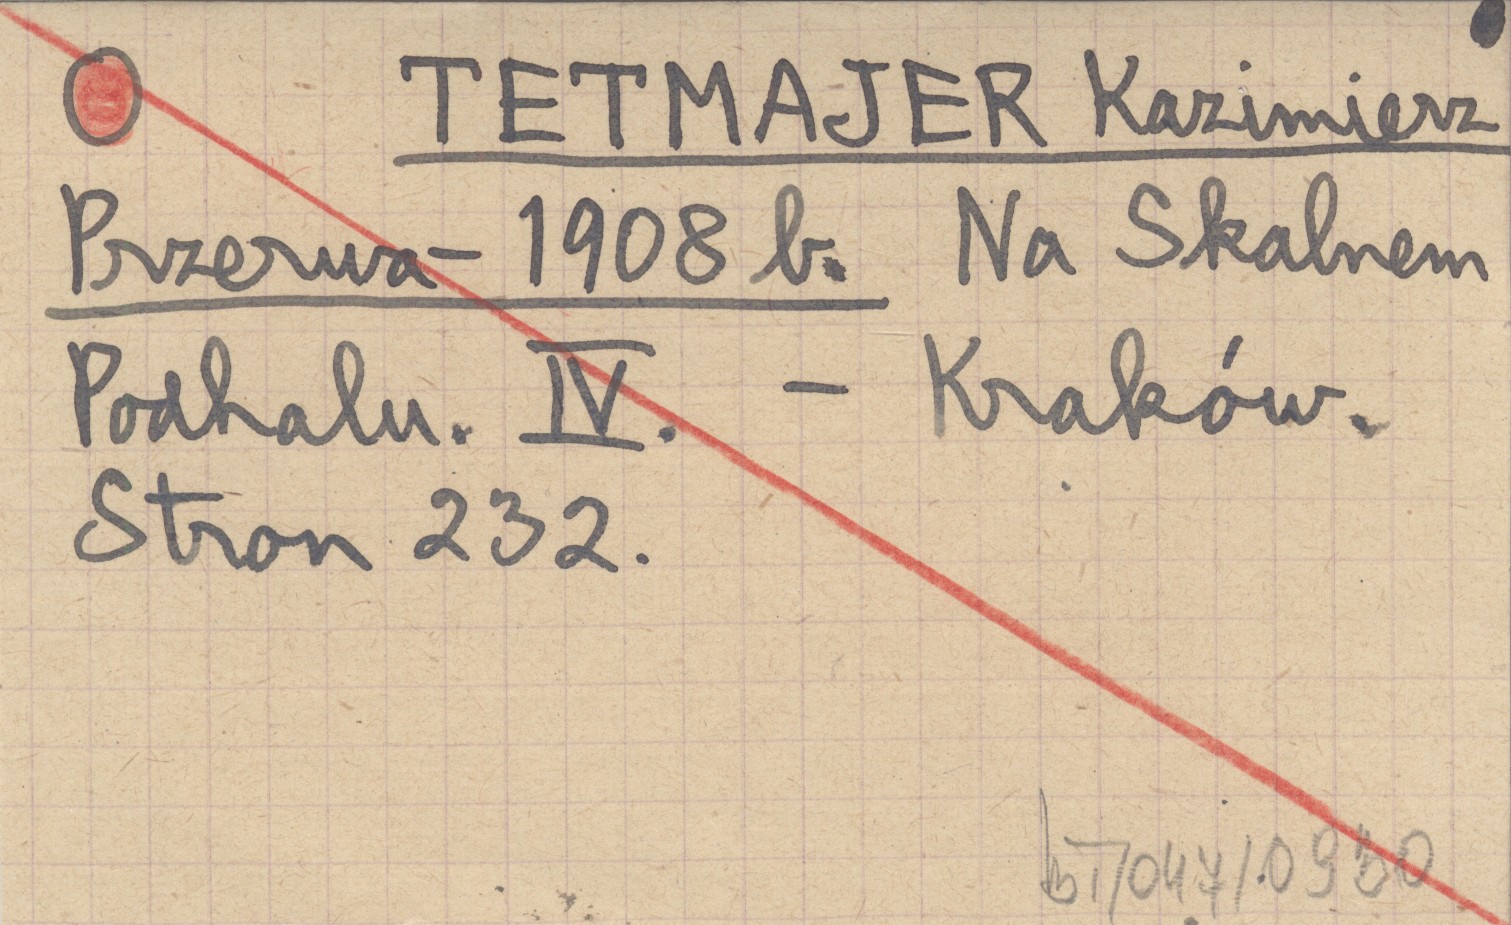 TETMAJER Kazimierz
Przerwa - 1908 b. Na Skalnem
Podhalu. IV. - Kraków.
Stron 232.